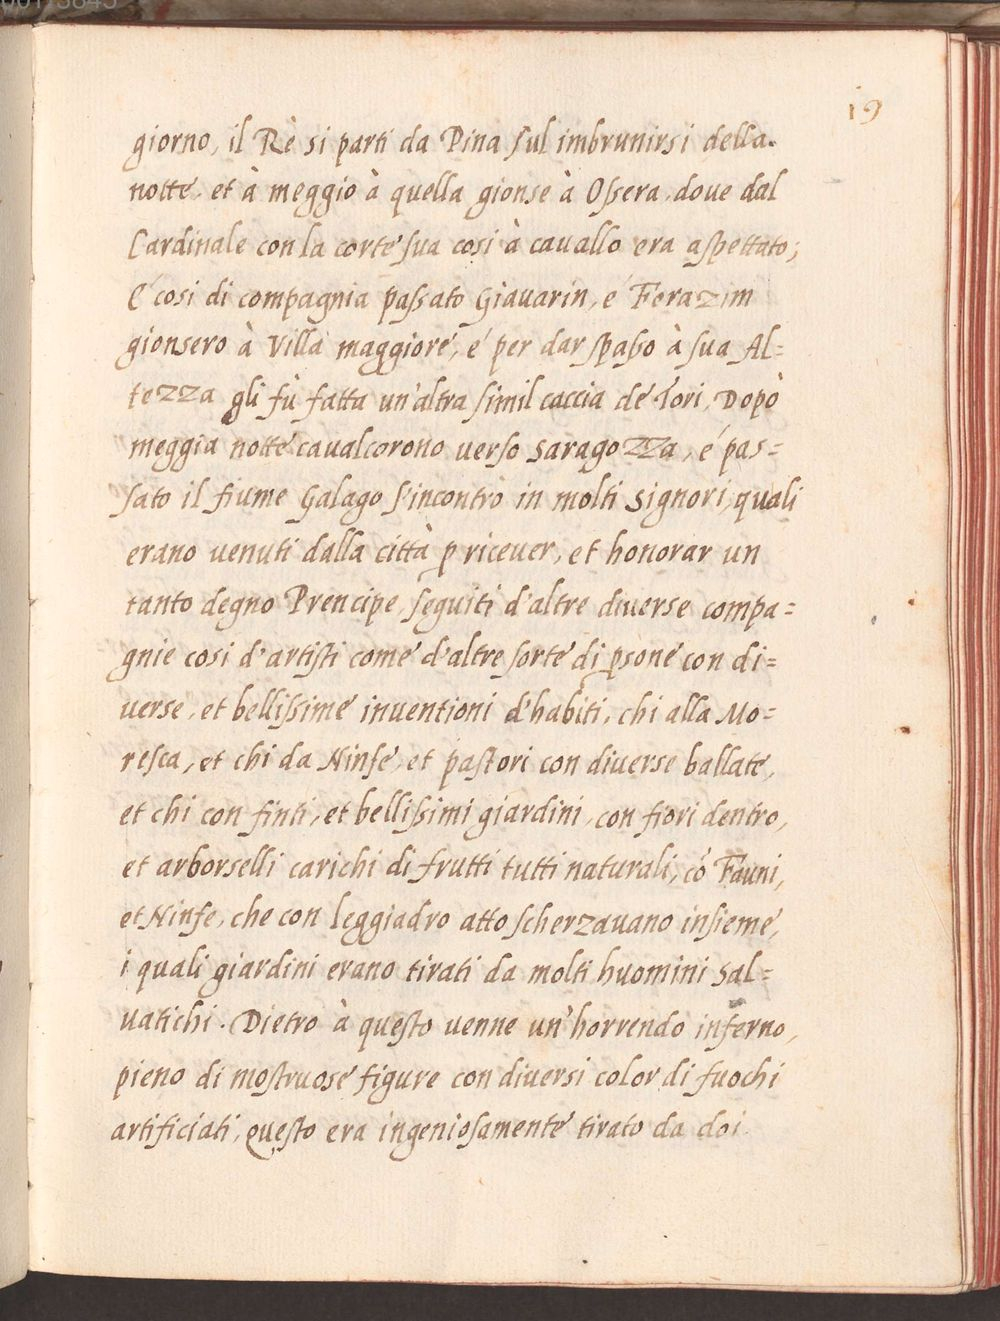 19
giorno, il Rè si parti da Pina ſul imbrunirsi della
notte, et à meggio à quella gionse à Oſsera, doue dal
Cardinale con la corte ſua cosi à cauallo era aſpettato;
E cosi di compagnia paſsato Giauarin, é Ferazim
gionsero à Villa maggiore, é per dar ſpaſso à ſua Al=
tezza gli fù fatta un'altra ſimil caccia de Tori, Dopò
meggia notte caualcorono verſo Saragozza, é pas=
ſato il fiume Galago s'incontrò in molti Signori, quali
erano uenuti dalla città p riceuer, et honorar un
tanto degno Prencipe, ſeguiti d'altre diuerse compa=
gnie cosi d'artiſti come d'altre ſorte di psone con di=
uerse, et belliſsime inuentioni d'habiti, chi alla Mo=
reſca, et chi da Ninfe, et paſtori con diuerse ballate,
et chi con finti, et belliſsimi giardini, con fiori dentro,
et arborselli carichi di frutti tutti naturali, có Fauni,
et Ninfe, che con leggiadro atto ſcherzauano inſieme,
i quali giardini erano tirati da molti huomini Sal=
uatichi. Dietro à queſto uenne un'horrendo inferno,
pieno di moſtruose figure con diuersi color di fuochi
artificiati, queſto era ingenioſamente tirato da doi